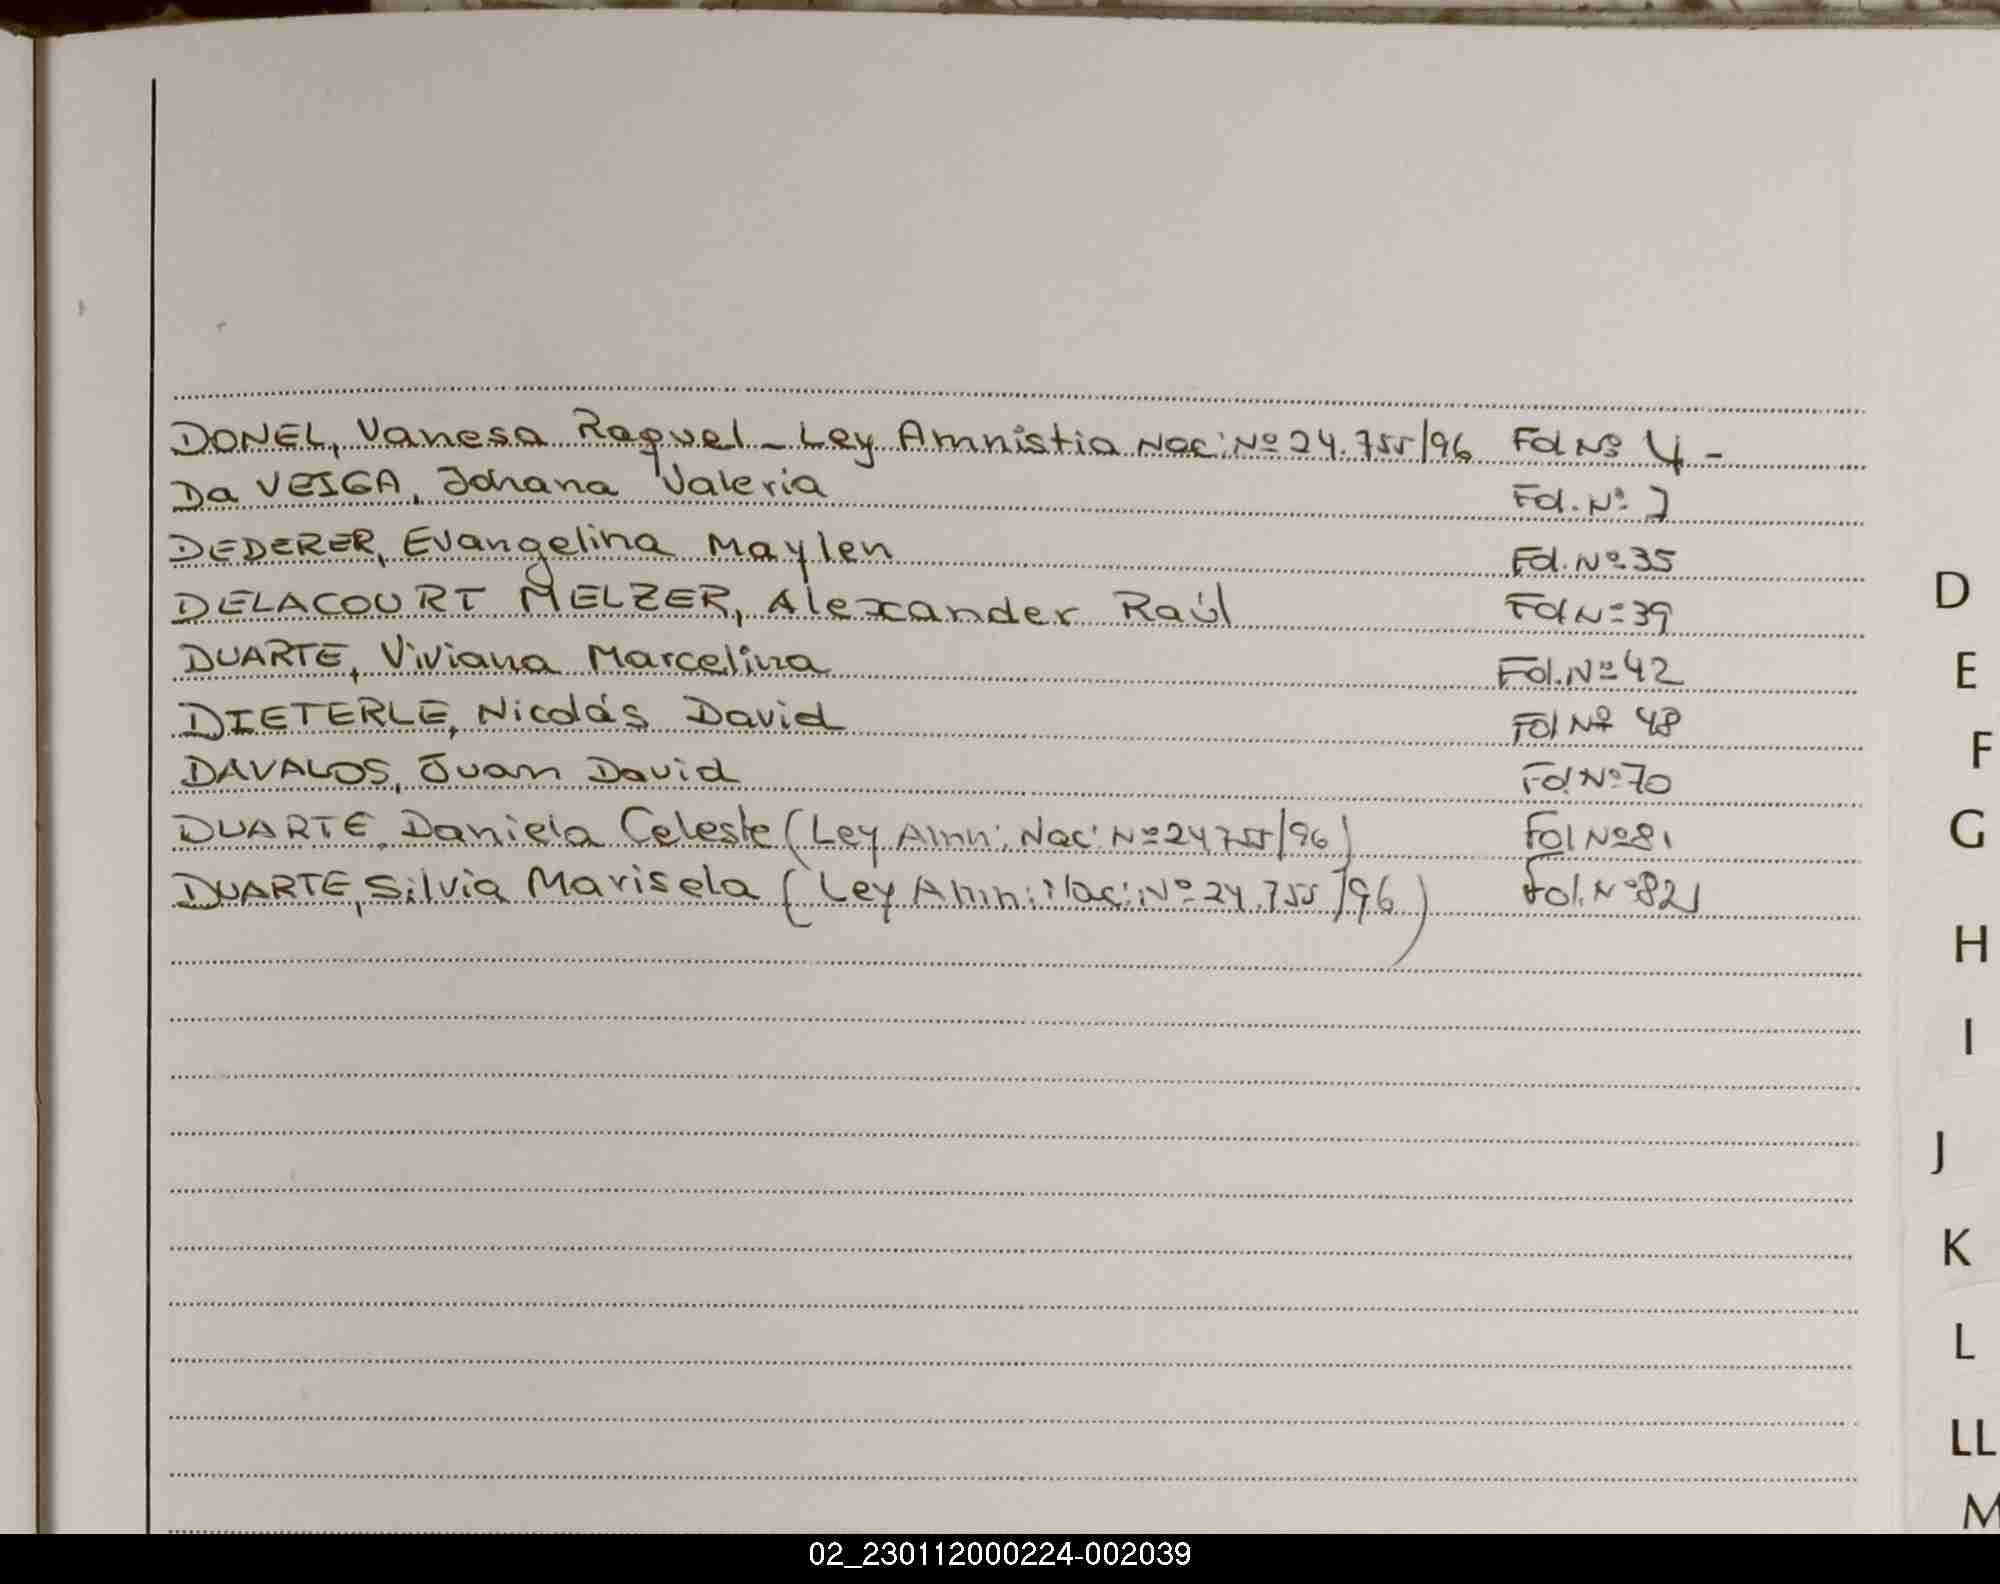 DONEL, Vanesa Raquel - Ley Amnistia Nac: Nº 24.755/96 Fol Nº 4 -
Da VEIGA, Johana Valeria Fol. Nº 7
DEDERER, Evangelina Maylen Fol. Nº 35
DELACOURT MELZER, Alexander Raúl Fol Nº 39
DUARTE, Viviana Marcelina Fol. Nº 42
DIETERLE, Nicolás David Fol Nº 48
DAVALOS, Juan David Fol Nº 70
DUARTE, Daniela Celeste (Ley Amn: Nac: Nº 24755/96) Fol Nº 81
DUARTE, Silvia Marisela (Ley Amn: Nac: Nº 24.755/96) Fol. Nº 82
D
E
F
G
H
I
J
K
L
LL
M
02_230112000224-002039